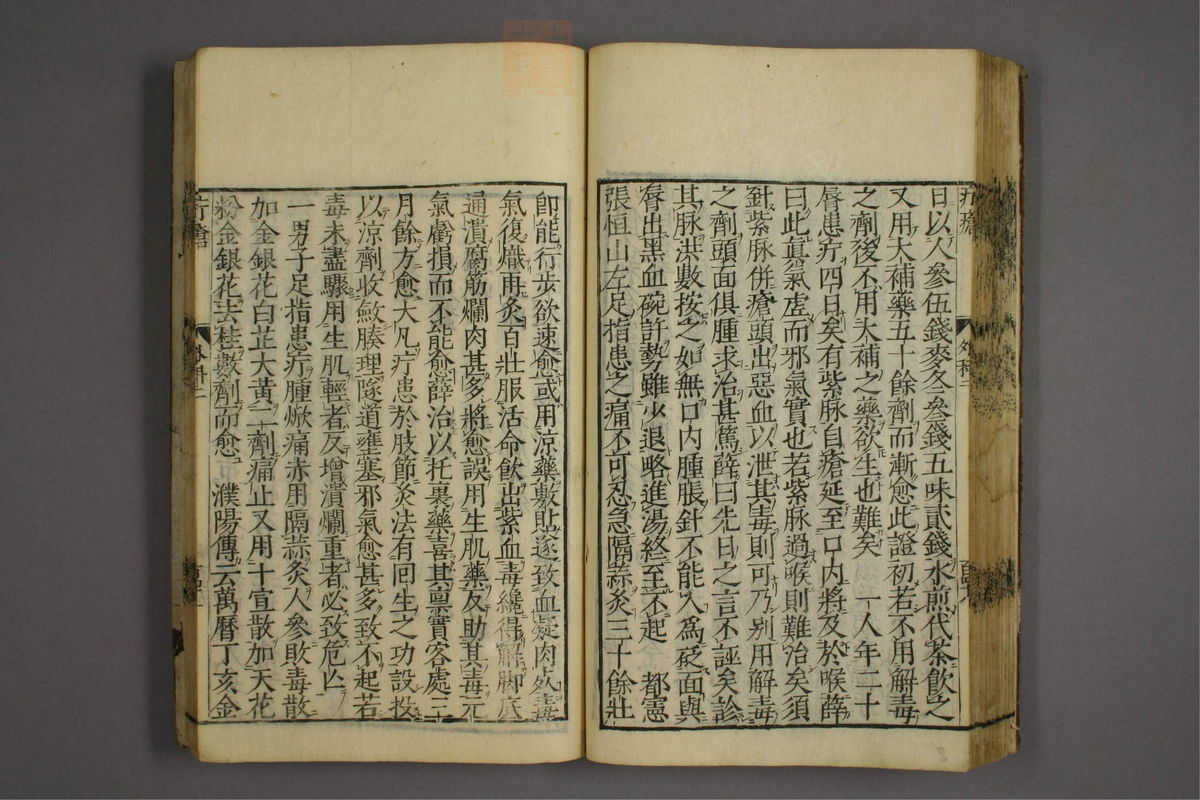 日以人參伍錢麥冬叄錢五味貳錢水煎代茶飮之
又用大補藥五十餘劑而漸愈此證初若不用解毒
之劑後不用大補之藥欲生也難矣 一人年二十
脣患疔四日矣有紫脉自瘡延至口内將及於喉薛
曰此眞氣虛而邪氣實也若紫脉過喉則難治矣須
針紫脉併瘡頭出惡血以泄其毒則可乃别用解毒
之劑頭面俱腫求治甚篤薛曰先日之言不誣矣診
其脉洪數按之如無口内腫脹針不能入爲砭面與
脣出黑血碗許勢雖少退略進湯終至不起 都憲
張恒山左足指患之痛不可忍急隔蒜灸三十餘壯
卽能行步欲速愈或用涼藥敷貼遂致血凝肉死毒
氣復熾再灸百壯服活命飮出紫血毒纔得解脚底
通潰腐筋爛肉甚多將愈誤用生肌藥反助其毒元
氣虧損而不能愈薛治以托裏藥喜其禀實客處三
月餘方愈大凡疔患於肢節灸法有回生之功設投
以涼劑收斂腠理隧道壅塞邪氣愈甚多致不起若
毒未盡驟用生肌輕者反增潰爛重者必致危亡
一男子足指患疔腫焮痛赤用隔蒜灸人參敗毒散
加金銀花白芷大黃二劑痛止又用十宣散加天花
粉金銀花去桂數劑而愈 濮陽傳云萬曆丁亥金
疔瘡
外科二